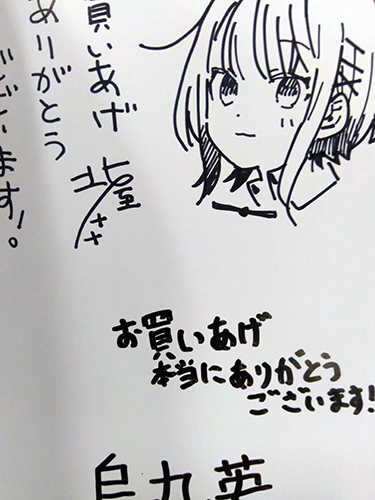 買いあげ
ありがとう
ございます!
お買いあげ
本当にありがとう
ございます!
烏丸英